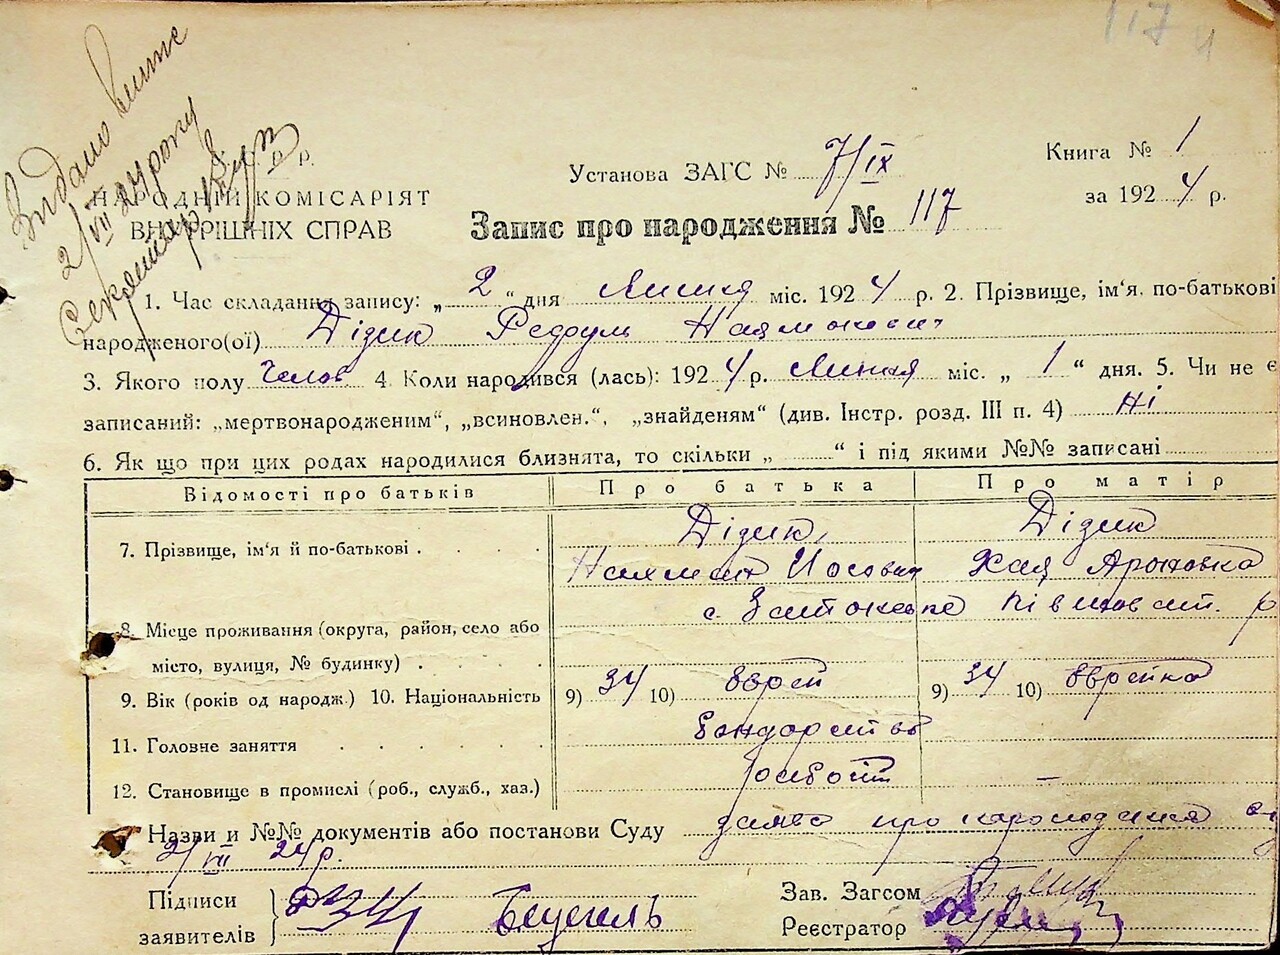 117
Видано випис
2/VII 24 року
Секретар
НАРОДНІЙ КОМІСАРІЯТ
ВНУТРІШНІХ СПРАВ
Установа ЗАГС № 7/IX
Книга № 1
за 1924 р.
Запис про народження № 117
1. Час складання запису: „ 2 “ дня Липня міс. 1924 р. 2. Прізвище, ім'я, по-батькові
народженого(ої) Дідик
3. Якого полу Челов 4. Коли народився (лась): 1924 р. Липня міс. „ 1 “ дня. 5. Чи не є
записаний: „мертвонародженим“, „всиновлен.“, „знайденям“ (див. Інстр. розд. III п. 4) Ні
6. Як що при цих родах народилися близнята, то скільки „ “ і під якими №№ записані
Відомості про батьків Про батька Про матір
7. Прізвище, ім'я й по-батькові . . . . Дідик, Дідик
Нахман Иосович Хая Ароновна
8. Місце проживання (округа, район, село або
с.
місто, вулиця, № будинку) . . . .
9. Вік (років од народж.) 10. Національність 9) 34 10) Єврей 9) 34 10) Єврейка
11. Головне заняття . . . . Бондарство
12. Становище в промислі (роб., служб., хаз.) —
Назви и №№ документів або постанови Суду про народження
2/VII 24 р.
Підписи
заявителів
Зав. Загсом
Реєстратор